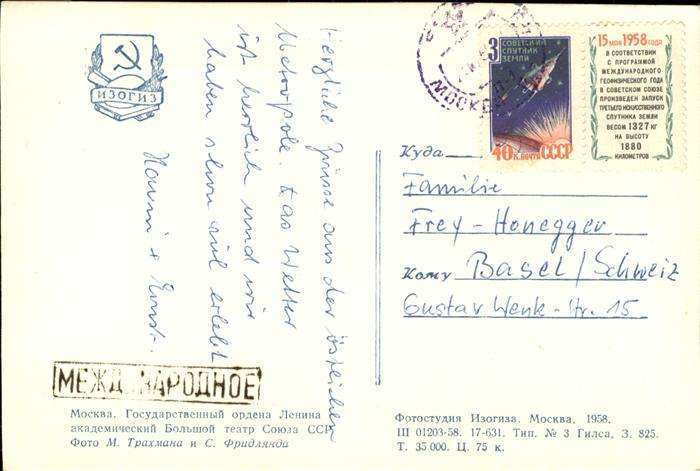 ИЗОГИЗ
МОСКВА
3 СОВЕТСКИЙ
СПУТНИК
ЗЕМЛИ
40 К. ПОЧТА СССР
15 мая 1958 года
В СООТВЕТСТВИИ
С ПРОГРАММОЙ
МЕЖДУНАРОДНОГО
ГЕОФИЗИЧЕСКОГО ГОДА
В СОВЕТСКОМ СОЮЗЕ
ПРОИЗВЕДЕН ЗАПУСК
ТРЕТЬЕГО ИСКУССТВЕННОГО
СПУТНИКА ЗЕМЛИ
ВЕСОМ 1327 КГ
НА ВЫСОТУ
1880
КИЛОМЕТРОВ
Herzliche Grüsse aus der östlichen
Metropole. Das Wetter
ist herrlich und wir
haben schon viel erlebt
Nanni + Ernst.
Куда
Familie
Frey-Honegger
Кому Basel/Schweiz
Gustav Wenk-Str. 15
МЕЖД НАРОДНОЕ
Москва. Государственный ордена Ленина
академический Большой театр Союза ССР
Фото М. Трахмана и С. Фридлянда
Фотостудия Изогиза. Москва, 1958.
Ш 01203-58. 17-631. Тип. № 3 Гилса, З. 825.
Т. 35 000. Ц. 75 к.